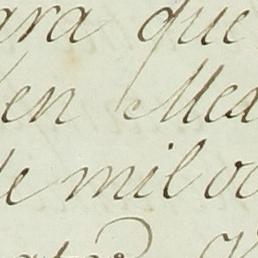 ara que
en Mea
de mil oc